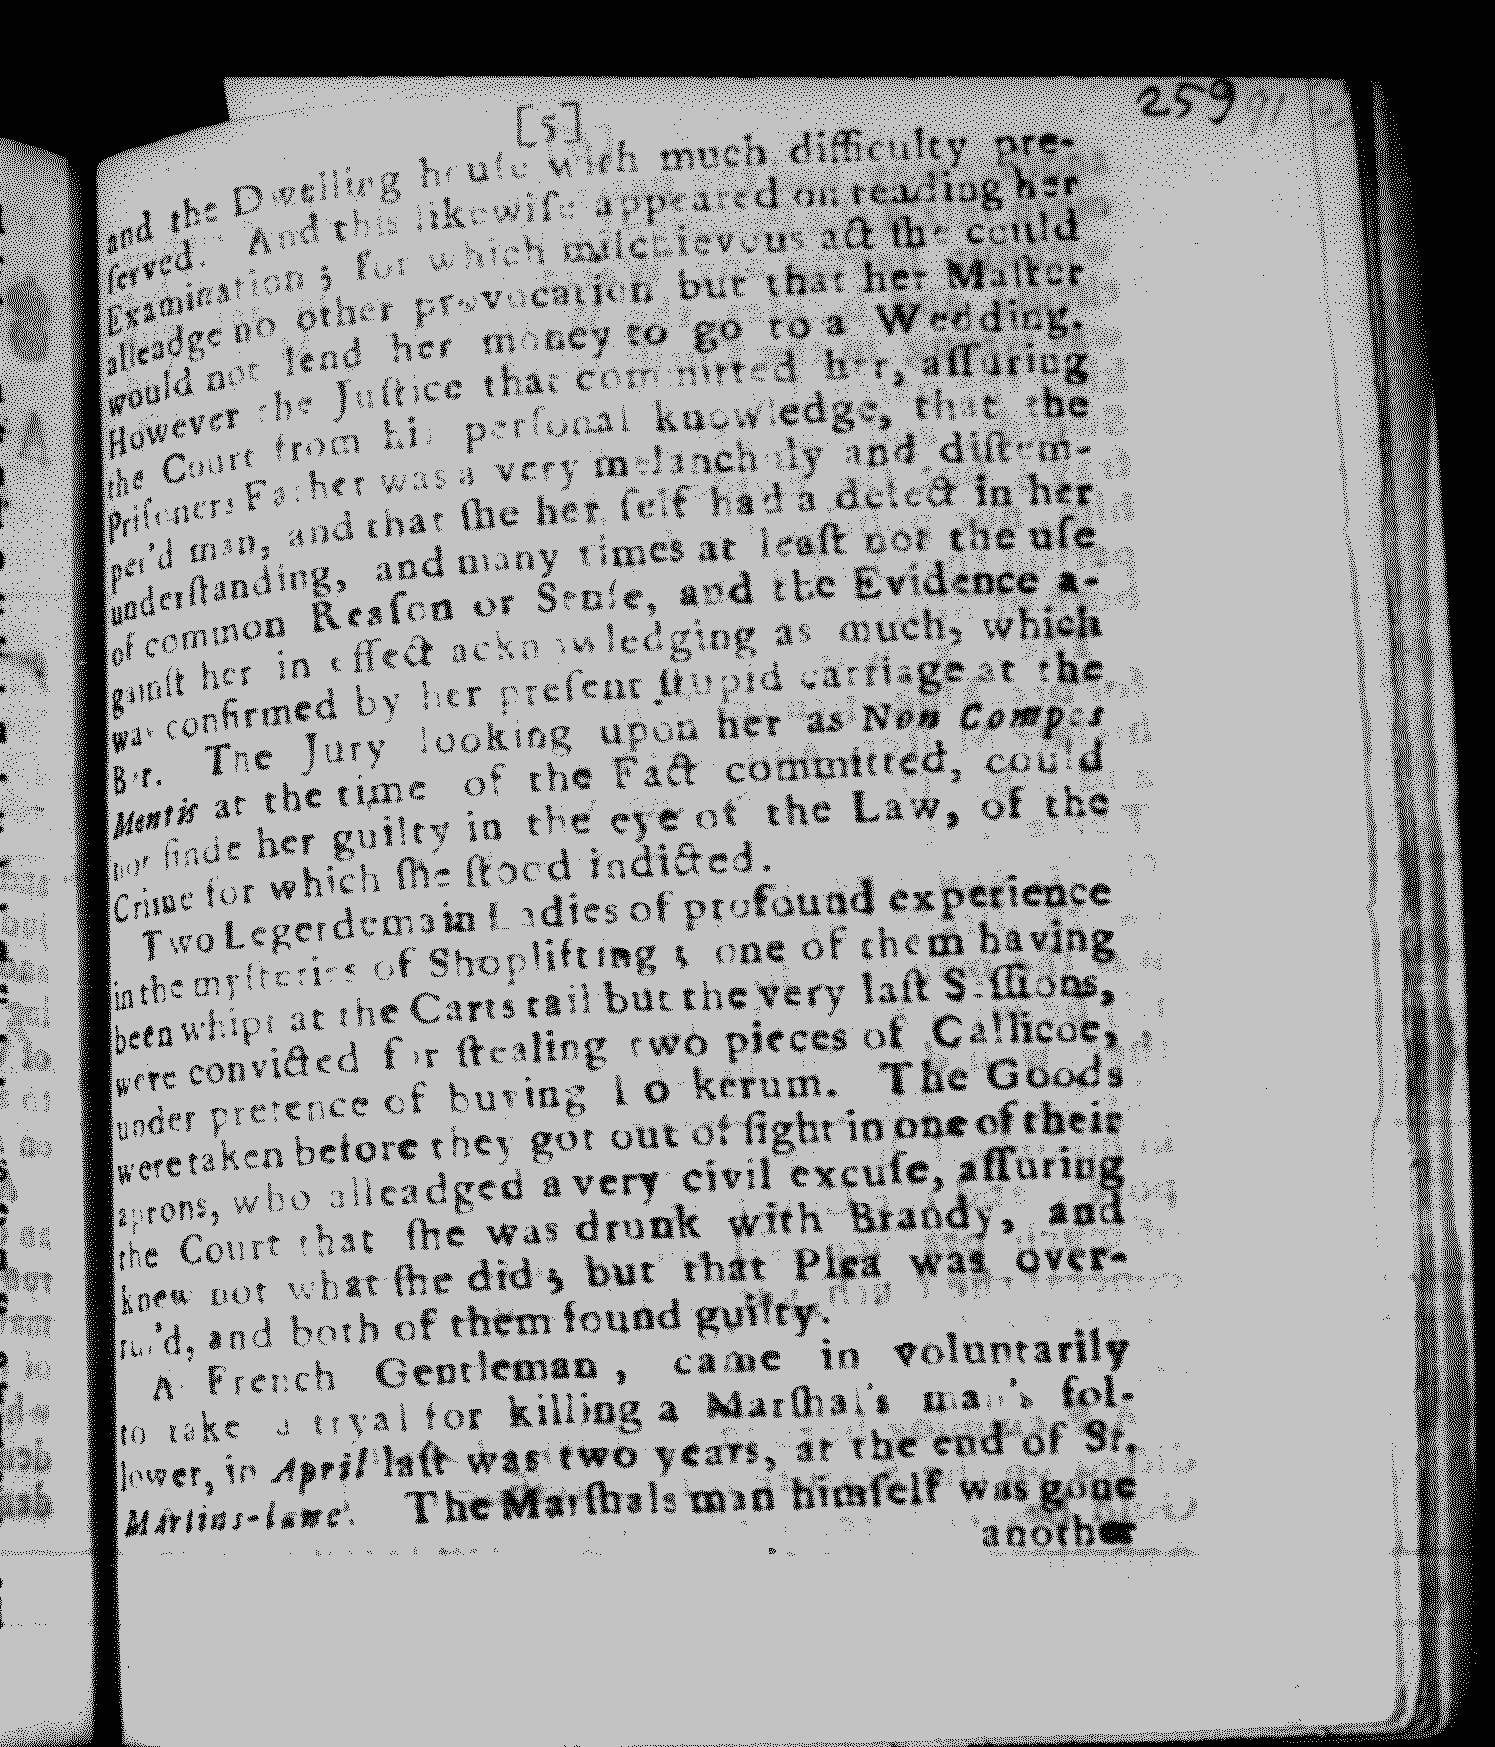 259
[5]
and the Dwelling houſe with much difficulty pre-
ſerved. And this likewiſe appeared on reading her
Examination; for which miſchievous act ſhe could
alleadge no other provocation but that her Maſter
would not lend her money to go to a Wedding.
However the Juſtice that committed her, aſſuring
the Court from his perſonal knowledge, that the
Priſoners Father was a very melancholy and diſtem-
per'd man, and that ſhe her ſelf had a defect in her
underſtanding, and many times at leaſt not the uſe
of common Reaſon or Senſe, and the Evidence a-
gainſt her in effect acknowledging as much, which
was confirmed by her preſent ſtupid carriage at the
Bar. The Jury looking upon her as Non Compos
Mentis at the time of the Fact committed, could
not finde her guilty in the eye of the Law, of the
Crime for which ſhe ſtood indicted.
Two Legerdemain Ladies of profound experience
in the myſteries of Shoplifting; one of them having
been whipt at the Carts tail but the very laſt Seſſions,
were convicted for ſtealing two pieces of Callicoe,
under pretence of buying kerum. The Goods
were taken before they got out of ſight in one of their
aprons, who alleadged a very civil excuſe, aſſuring
the Court that ſhe was drunk with Brandy, and
knew not what ſhe did; but that Plea was over-
rul'd, and both of them found guilty.
A French Gentleman, came in voluntarily
to take a tryal for killing a Marſhal's man's fol-
lower, in April laſt was two years, at the end of St.
Martins-lane. The Marſhals man himſelf was gone
another